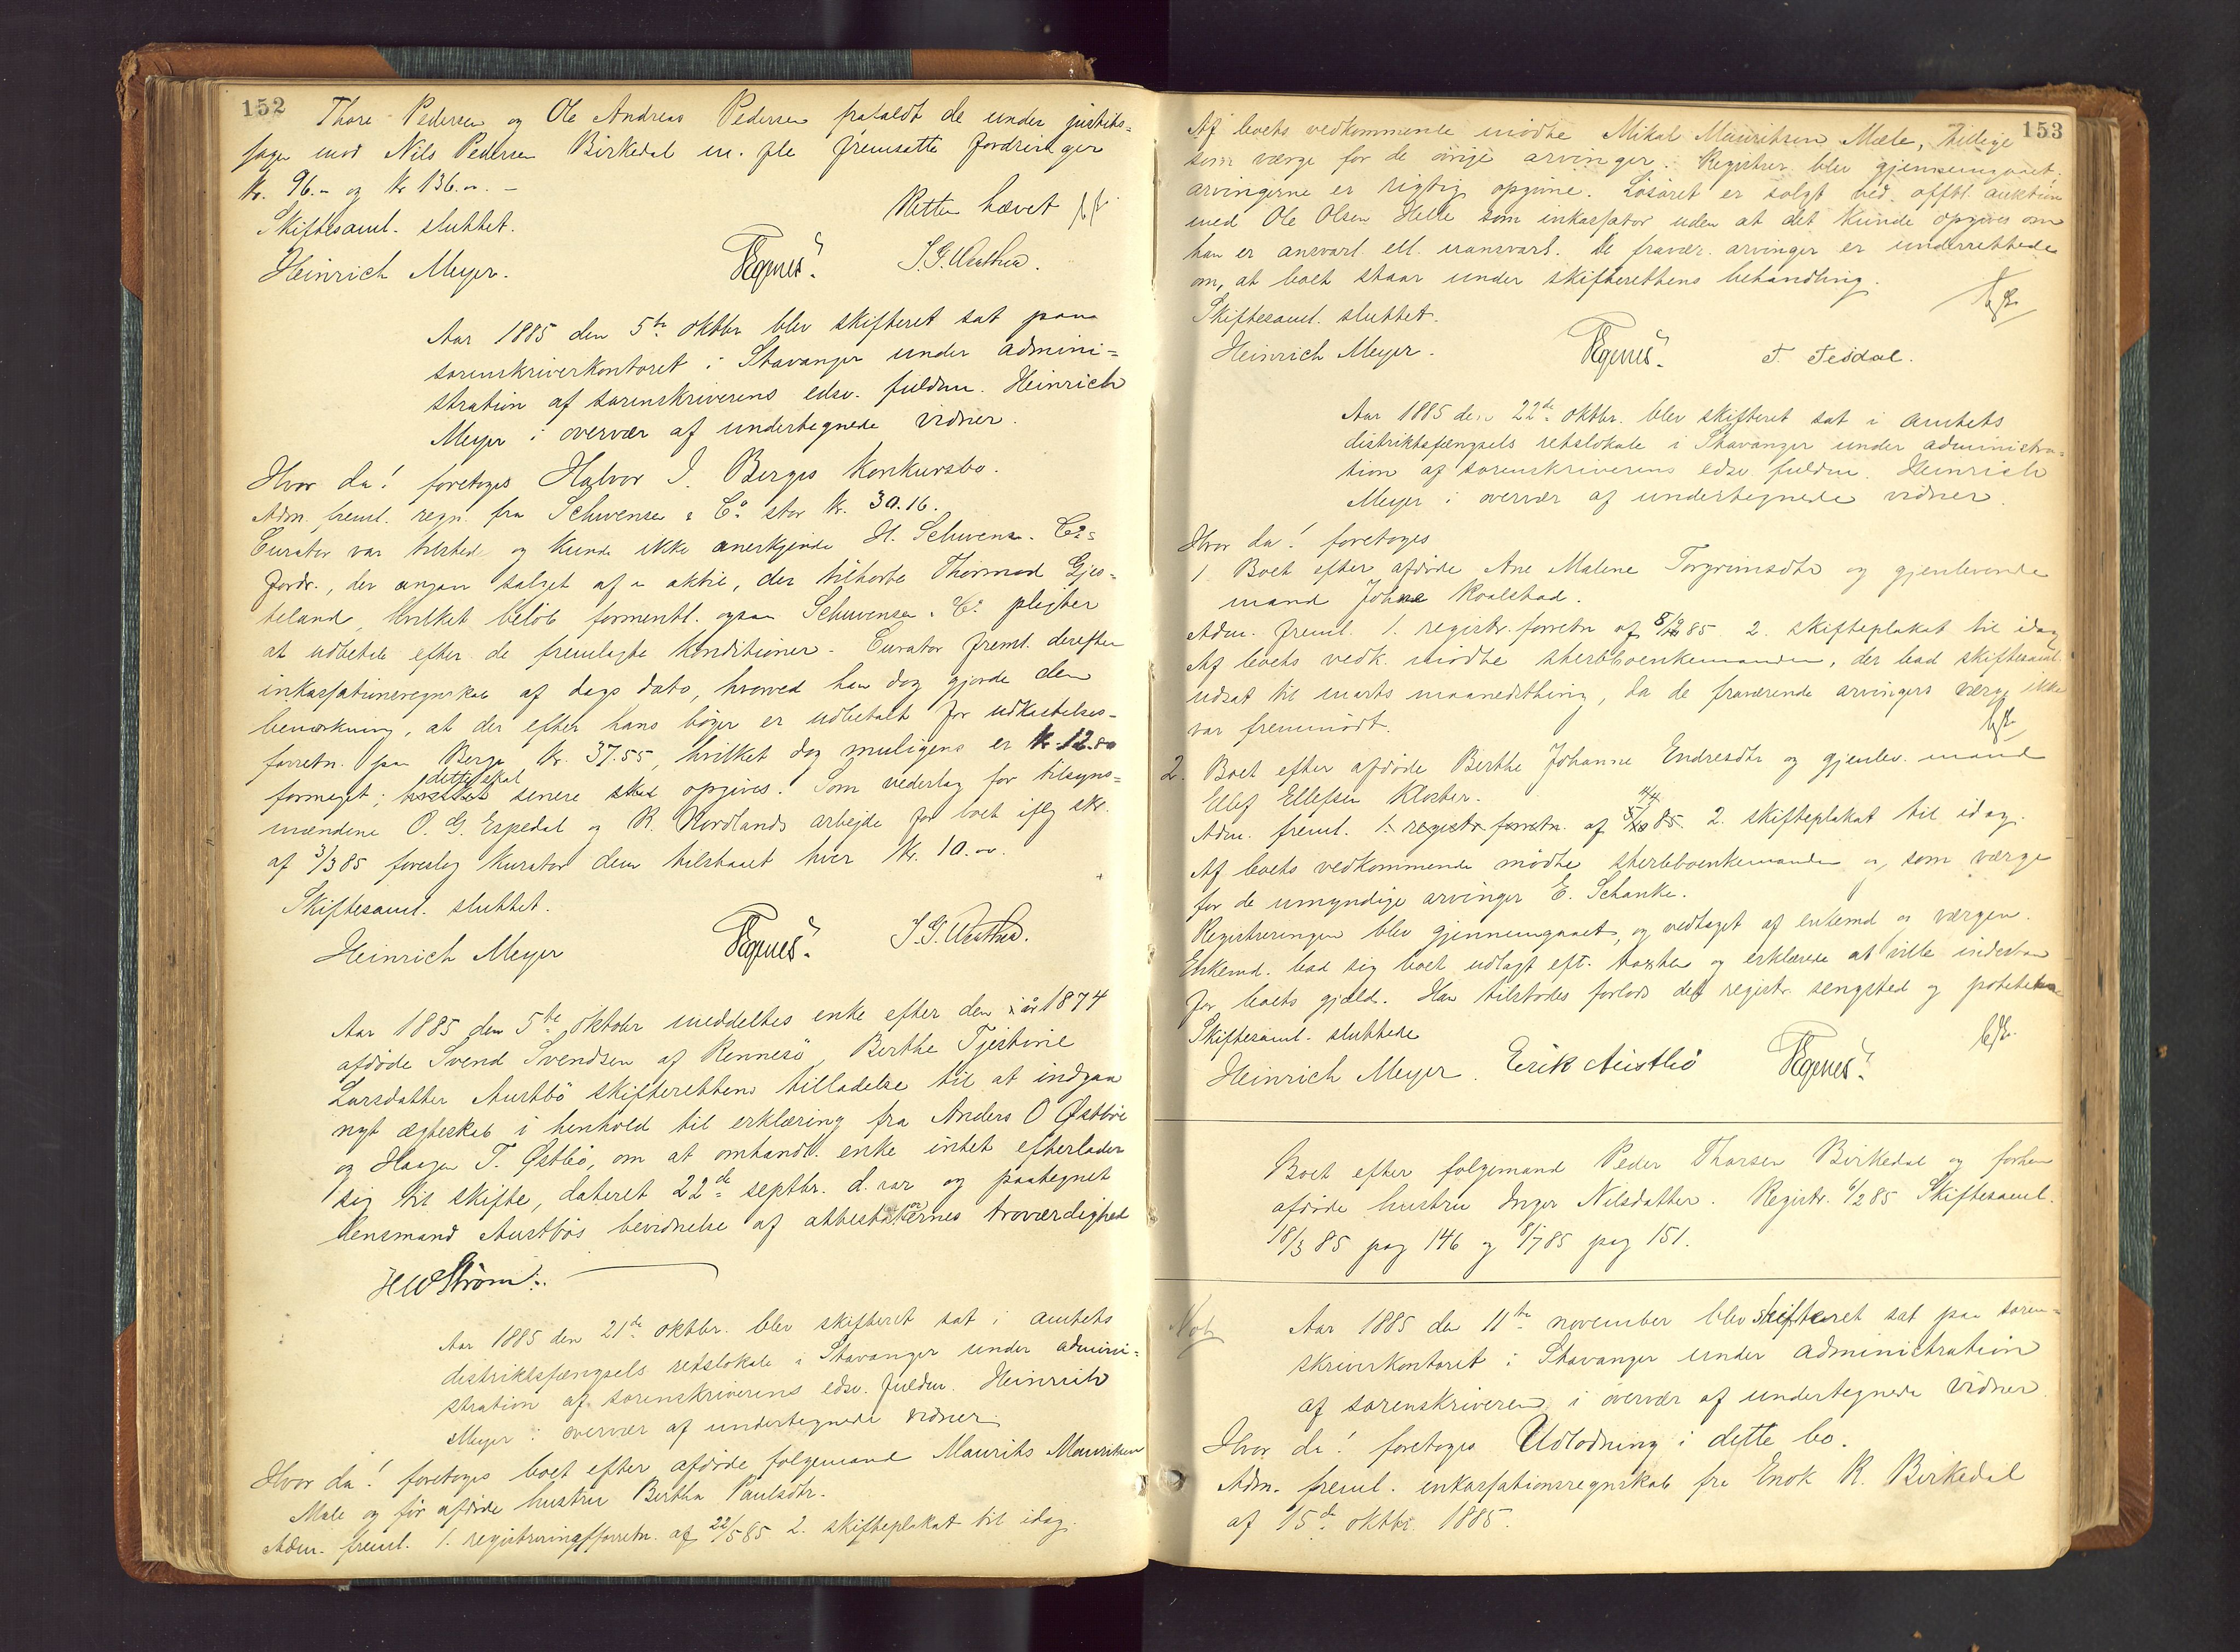 152
Thore Pedersen og Ole Andreas Pedersen frafaldt de under justits-
sagen mod Nils Pedersen Birkedal m. fle fremsatte fordringer
Kr. 96.- og Kr 136.00. -
Retten hævet
Skiftesaml. sluttet.
Heinrich Meyer.
Aar 1885 den 5te oktbr blev skifteret sat paa
sorenskriverkontoret i Stavanger under admini-
stration af sorenskriverens edsv. fuldm. Heinrich
Meyer i overvær af undertegnede vidner.
Hvor da! foretoges Halvor J. Berges Konkursbo.
Adm. freml. regn. fra Schwensen & Co. stor Kr. 30.16.
Curator var tilstede og kunde ikke anerkjende H. Schwens. Co.s
fordr., der angaar salget af 1 aktie, der tilhørte Thormod Gjes-
teland, hvilket beløb formentl. ogsaa Schwensen & Co. pligter
at udbetale efter de fremlagte konditioner - Curator freml. derefter
inkassationsregnskab af dags dato, hvorved han dog gjorde den
bemærkning, at der efter hans bøger er udbetalt for udkastelses-
forretn. paa Berge Kr. 37.55, hvilket dog muligens er Kr. 12.80
formeget; dette skal senere opgives. Som vederlag for tilsyns-
mændene O. G. Espedal og R. Nordlands arbejde for boet iflg skr.
af 3/3 85 foreslog kurator dem tilstaaet hver Kr. 10.00.
Skiftesaml. sluttet.
Heinrich Meyer
Aar 1885 den 5te oktober meddeltes enke efter den i år 1874
afdøde Svend Svendsen af Rennesø, Berthe Tjestine
Larsdatter Austbø skifterettens tilladelse til at indgaa
nyt ægteskab i henhold til erklæring fra Anders O Østbø
og Haagen T. Østbø, om at omhandl. enke intet efterlader
sig til skifte, dateret 22de septbr. d. aar og paategnet
lensmand Austbøs bevidnelse af attestatorernes troværdighed
HWStrøm.
Aar 1885 den 21de oktbr. blev skifteret sat i amtets
distriktsfængsels retslokale i Stavanger under admini-
stration af sorenskriverens edsv. fuldm. Heinrich
Meyer i overvær af undertegnede vidner
Hvor da! foretoges boet efter afdøde følgemand Maurits Mauritsen
Mæle og før afdøde hustru Bertha Paulsdtr.
Adm. freml. 1. registreringsforretn. af 22/5 85 2. skifteplakat til idag.
153
Af boets vedkommende mødte Mikal Mauritsen Mæle, tillige
som værge for de øvrige arvinger. Registrer. blev gjennemgaaet.
arvingerne er rigtig opgivne. Løsøret er solgt ved offtl. auktion
med Ole Olsen Helle som inkassator uden at det kunde opgives om
han er ansvarl. ell. uansvarl. De fravær. arvinger er underrettede
om, at boet staar under skifterettens behandling.
Skiftesaml. sluttet.
Heinrich Meyer. T. Tesdal.
Aar 1885 den 22de oktbr. blev skifteret sat i amtets
distriktsfængsels retslokale i Stavanger under administra-
tion af sorenskriverens edsv. fuldm. Heinrich
Meyer i overvær af undertegnede vidner.
Hvor da! foretoges
1 Boet efter afdøde Ane Malene Torgrimsdtr og gjenlevende
mand Johne Koalstad.
Adm. freml. 1. registr. forretn af 85 2. skifteplakat til idag
Af boets vedk. mødte sterboenkemanden, der bad skiftesaml.
udsat til marts maanedsthing, da de fraværende arvingers værge ikke
var fremmødt.
2. Boet efter afdøde Berthe Johanne Endresdtr og gjenlev. mand
Ellef Ellefsen Kloster.
Adm. freml. 1. registr forretn. af 85. 2. skifteplakat til idag.
Af boets vedkommende mødte sterboenkemanden og som værge
for de umyndige arvinger E. Schanke.
Registreringen blev gjennemgaaet, og vedtaget af enkemd og værgen.
Enkemd. bad sig boet udlagt eft. taxten og erklærede at ville indestaa
for boets gjæld. Han tilstodes forlods det registr. sengsted og poteterne
Skiftesaml. sluttede
Heinrich Meyer. Erik Austbø
Boet efter følgemand Peder Thorsen Birkedal og forhen
afdøde hustru Inger Nilsdatter. Registr. 6/2 85 Skiftesaml.
18/3 85 pag 146 og 8/7 85 pag 151.
Aar 1885 den 11te november blev skifteret sat paa soren-
skriverkontoret i Stavanger under administration
af sorenskriveren i overvær af undertegnede vidner
Hvor da! foretoges Udlodning i dette bo.
Adm. freml. inkassationsregnskab fra Enok R. Birkedal
af 15de oktbr. 1885.